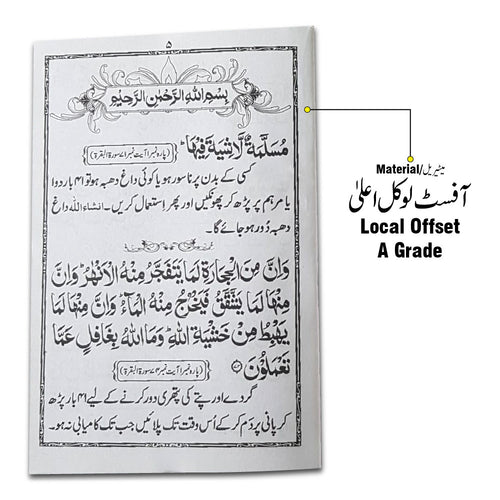 ۵
بِسْمِ اللهِ الرَّحْمٰنِ الرَّحِيْمِ
مُسَلَّمَةٌ لَّا شِيَةَ فِيْهَا ؕ (پارہ نمبر۱ آیت نمبر۷۱ سورۃ البقرۃ)
کسی کے بدن پر ناسور ہو یا کوئی داغ دھبہ ہو تو ۴۱ بار دوا
یا مرہم پر پڑھ کر پھونکیں اور پھر استعمال کریں۔ انشاء اللہ داغ
دھبہ دُور ہو جائے گا۔
وَاِنَّ مِنَ الْحِجَارَةِ لَمَا يَتَفَجَّرُ مِنْهُ الْاَنْهٰرُ ؕ وَاِنَّ
مِنْهَا لَمَا يَشَّقَّقُ فَيَخْرُجُ مِنْهُ الْمَآءُ ؕ وَاِنَّ مِنْهَا لَمَا
يَهْبِطُ مِنْ خَشْيَةِ اللهِ ؕ وَمَا اللهُ بِغَافِلٍ عَمَّا
تَعْمَلُوْنَ
(پارہ نمبر۱ آیت نمبر۷۴ سورۃ البقرۃ)
گردے اور پتے کی پتھری دور کرنے کے لیے ۴۱ بار پڑھ
کر پانی پر دَم کر کے اُس وقت تک پلائیں جب تک کامیابی نہ ہو۔
Material/میٹیریل
آفسٹ لوکل اعلیٰ
Local Offset
A Grade